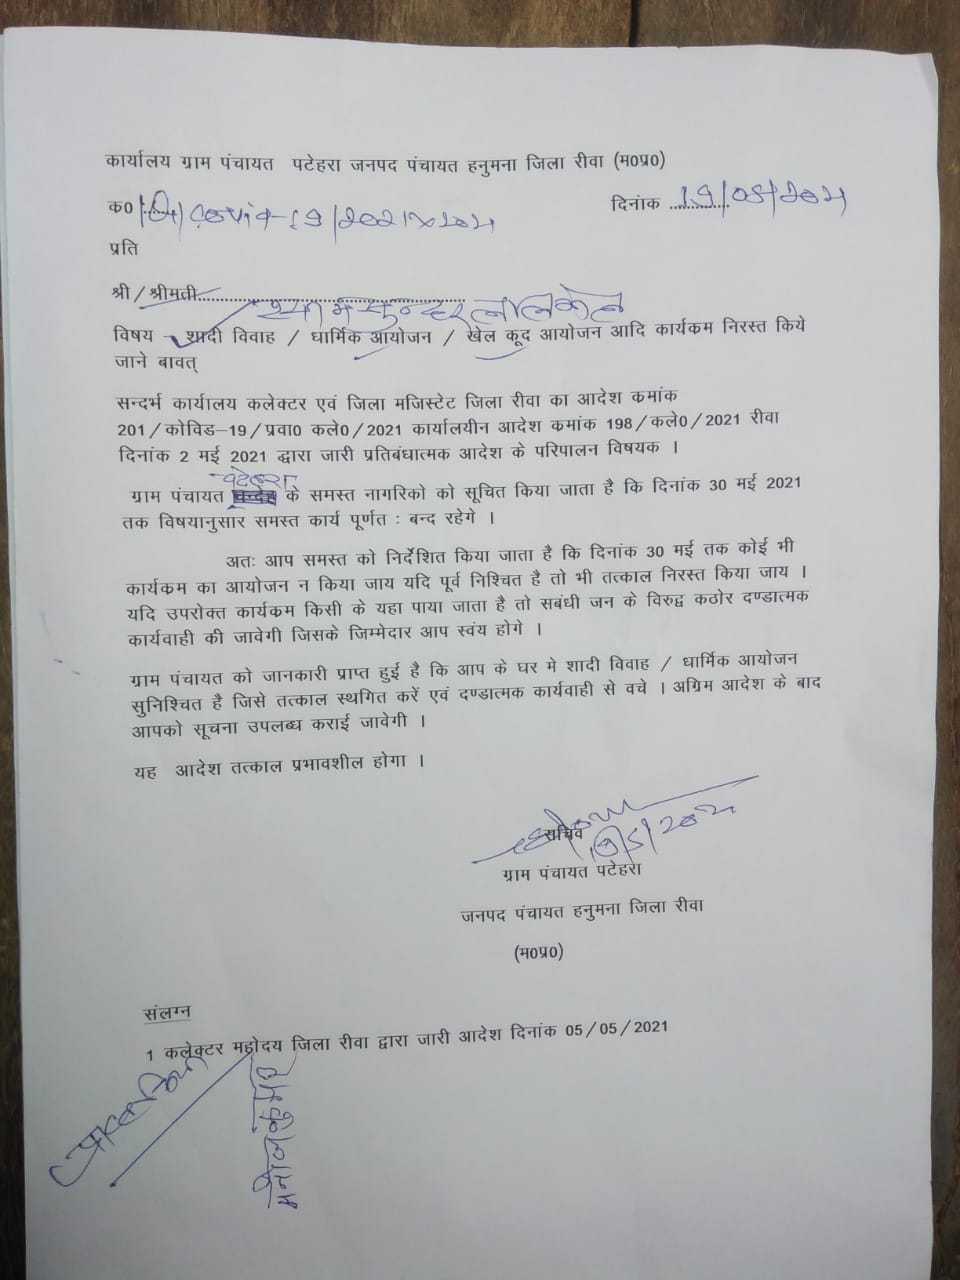 कार्यालय ग्राम पंचायत पटेहरा जनपद पंचायत हनुमना जिला रीवा (म०प्र०)
क0 /covid-19/2021
दिनांक 19/05/2021
प्रति
श्री/श्रीमती श्याम सुन्दर लाल
विषय – शादी विवाह / धार्मिक आयोजन / खेल कूद आयोजन आदि कार्यकम निरस्त किये
जाने बावत्
सन्दर्भ कार्यालय कलेक्टर एवं जिला मजिस्टेट जिला रीवा का आदेश कमांक
201/कोविड–19/प्रवा0 कले0/2021 कार्यालयीन आदेश कमांक 198/कले0/2021 रीवा
दिनांक 2 मई 2021 द्वारा जारी प्रतिबंधात्मक आदेश के परिपालन विषयक ।
पटेहरा
ग्राम पंचायत के समस्त नागरिको को सूचित किया जाता है कि दिनांक 30 मई 2021
तक विषयानुसार समस्त कार्य पूर्णत : बन्द रहेगे ।
अतः आप समस्त को निर्देशित किया जाता है कि दिनांक 30 मई तक कोई भी
कार्यकम का आयोजन न किया जाय यदि पूर्व निश्चित है तो भी तत्काल निरस्त किया जाय ।
यदि उपरोक्त कार्यकम किसी के यहा पाया जाता है तो सबंधी जन के विरुद्व कठोर दण्डात्मक
कार्यवाही की जावेगी जिसके जिम्मेदार आप स्वंय होगे ।
ग्राम पंचायत को जानकारी प्राप्त हुई है कि आप के घर मे शादी विवाह / धार्मिक आयोजन
सुनिश्चित है जिसे तत्काल स्थगित करें एवं दण्डात्मक कार्यवाही से वचे । अग्रिम आदेश के बाद
आपको सूचना उपलब्ध कराई जावेगी ।
यह आदेश तत्काल प्रभावशील होगा ।
सचिव
ग्राम पंचायत पटेहरा
जनपद पंचायत हनुमना जिला रीवा
(म०प्र०)
संलग्न
1 कलेक्टर महोदय जिला रीवा द्वारा जारी आदेश दिनांक 05/05/2021
प्राप्त किया
मनोज कुमार